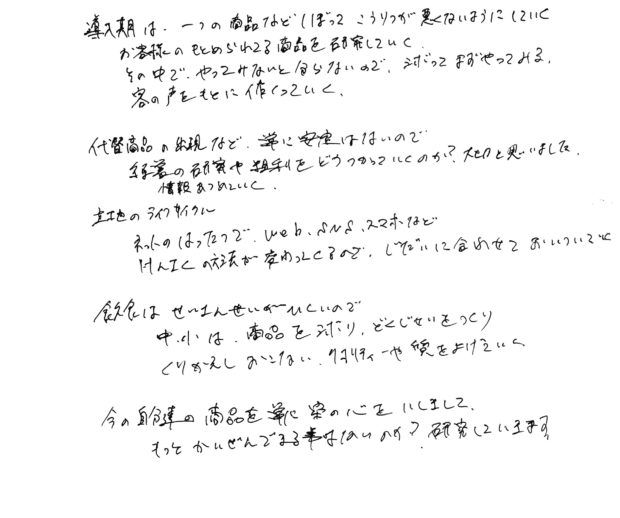 導入期は、一つの商品などしぼって こうりつが悪くないようにしていく
お客様のもとめられてる商品を研究していく
その中で、やってみないと分らないので、決めってまずやってみる。
客の声をもとに作くっていく。
代替商品の出現など、常に安定はないので
経営の研究や粗利をどうつかっていくのか?大切と思いました。
情報あつめていく。
立地のライフサイクル
ネットのはったつで、web、SNS、スマホなど
けんさくの方法が変わってくるので、じだいに合わせておいついていく
飲食はせいさんせいがひくいので
中小は、商品をしぼり、どくじせいをつくり
くりかえしおこない、クオリティーや質をよけていく
今の自分達の商品を常に客の心をいしきして、
もっとかいぜんできる事はないのか?研究していきます